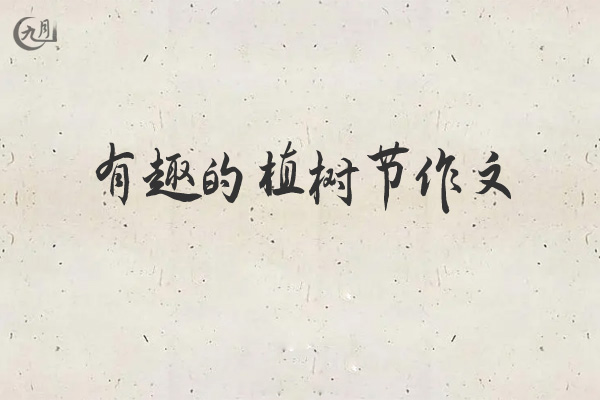 九月
有趣的植树节作文